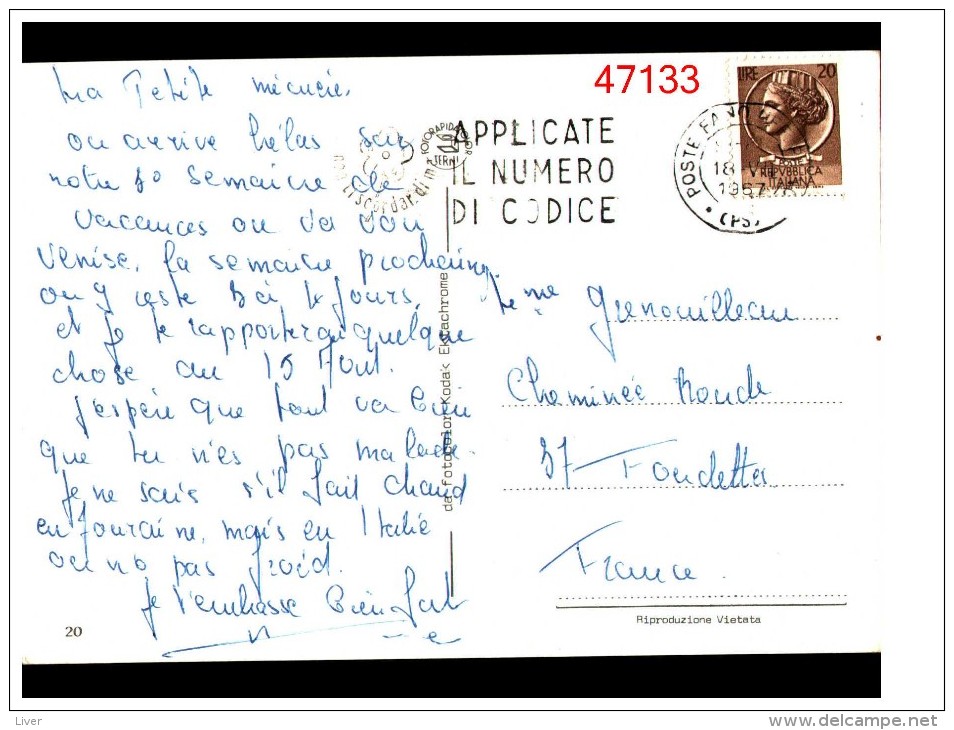 Ma Petite mécucie,
ou arrive hélas sur
notre 3º semaine de
vacances ou va voir
Venise, la semaine prochaine,
ou y reste 3 à 4 jours,
et je te rapporterai quelque
chose au 15 Aout.
J'espère que tout va bien
que tu n'es pas malade.
Je ne sais s'il fait chaud
en Touraine, mais en Italie
ou n'a pas froid.
Je t'embrasse bien fort
20
non ti scordar di me
FOTORAPIDACOLOR
TERNI
da fotocolor Kodak Ektachrome
47133
APPLICATE
IL NUMERO
DI CODICE
POSTE FANO
18-V
1967
(PS)
LIRE 20
REPVBBLICA
ITALIANA
Mme Grenouilleau
Cheminée Ronde
37 Fondettes
France.
Riproduzione Vietata
Liver
delcampe.net